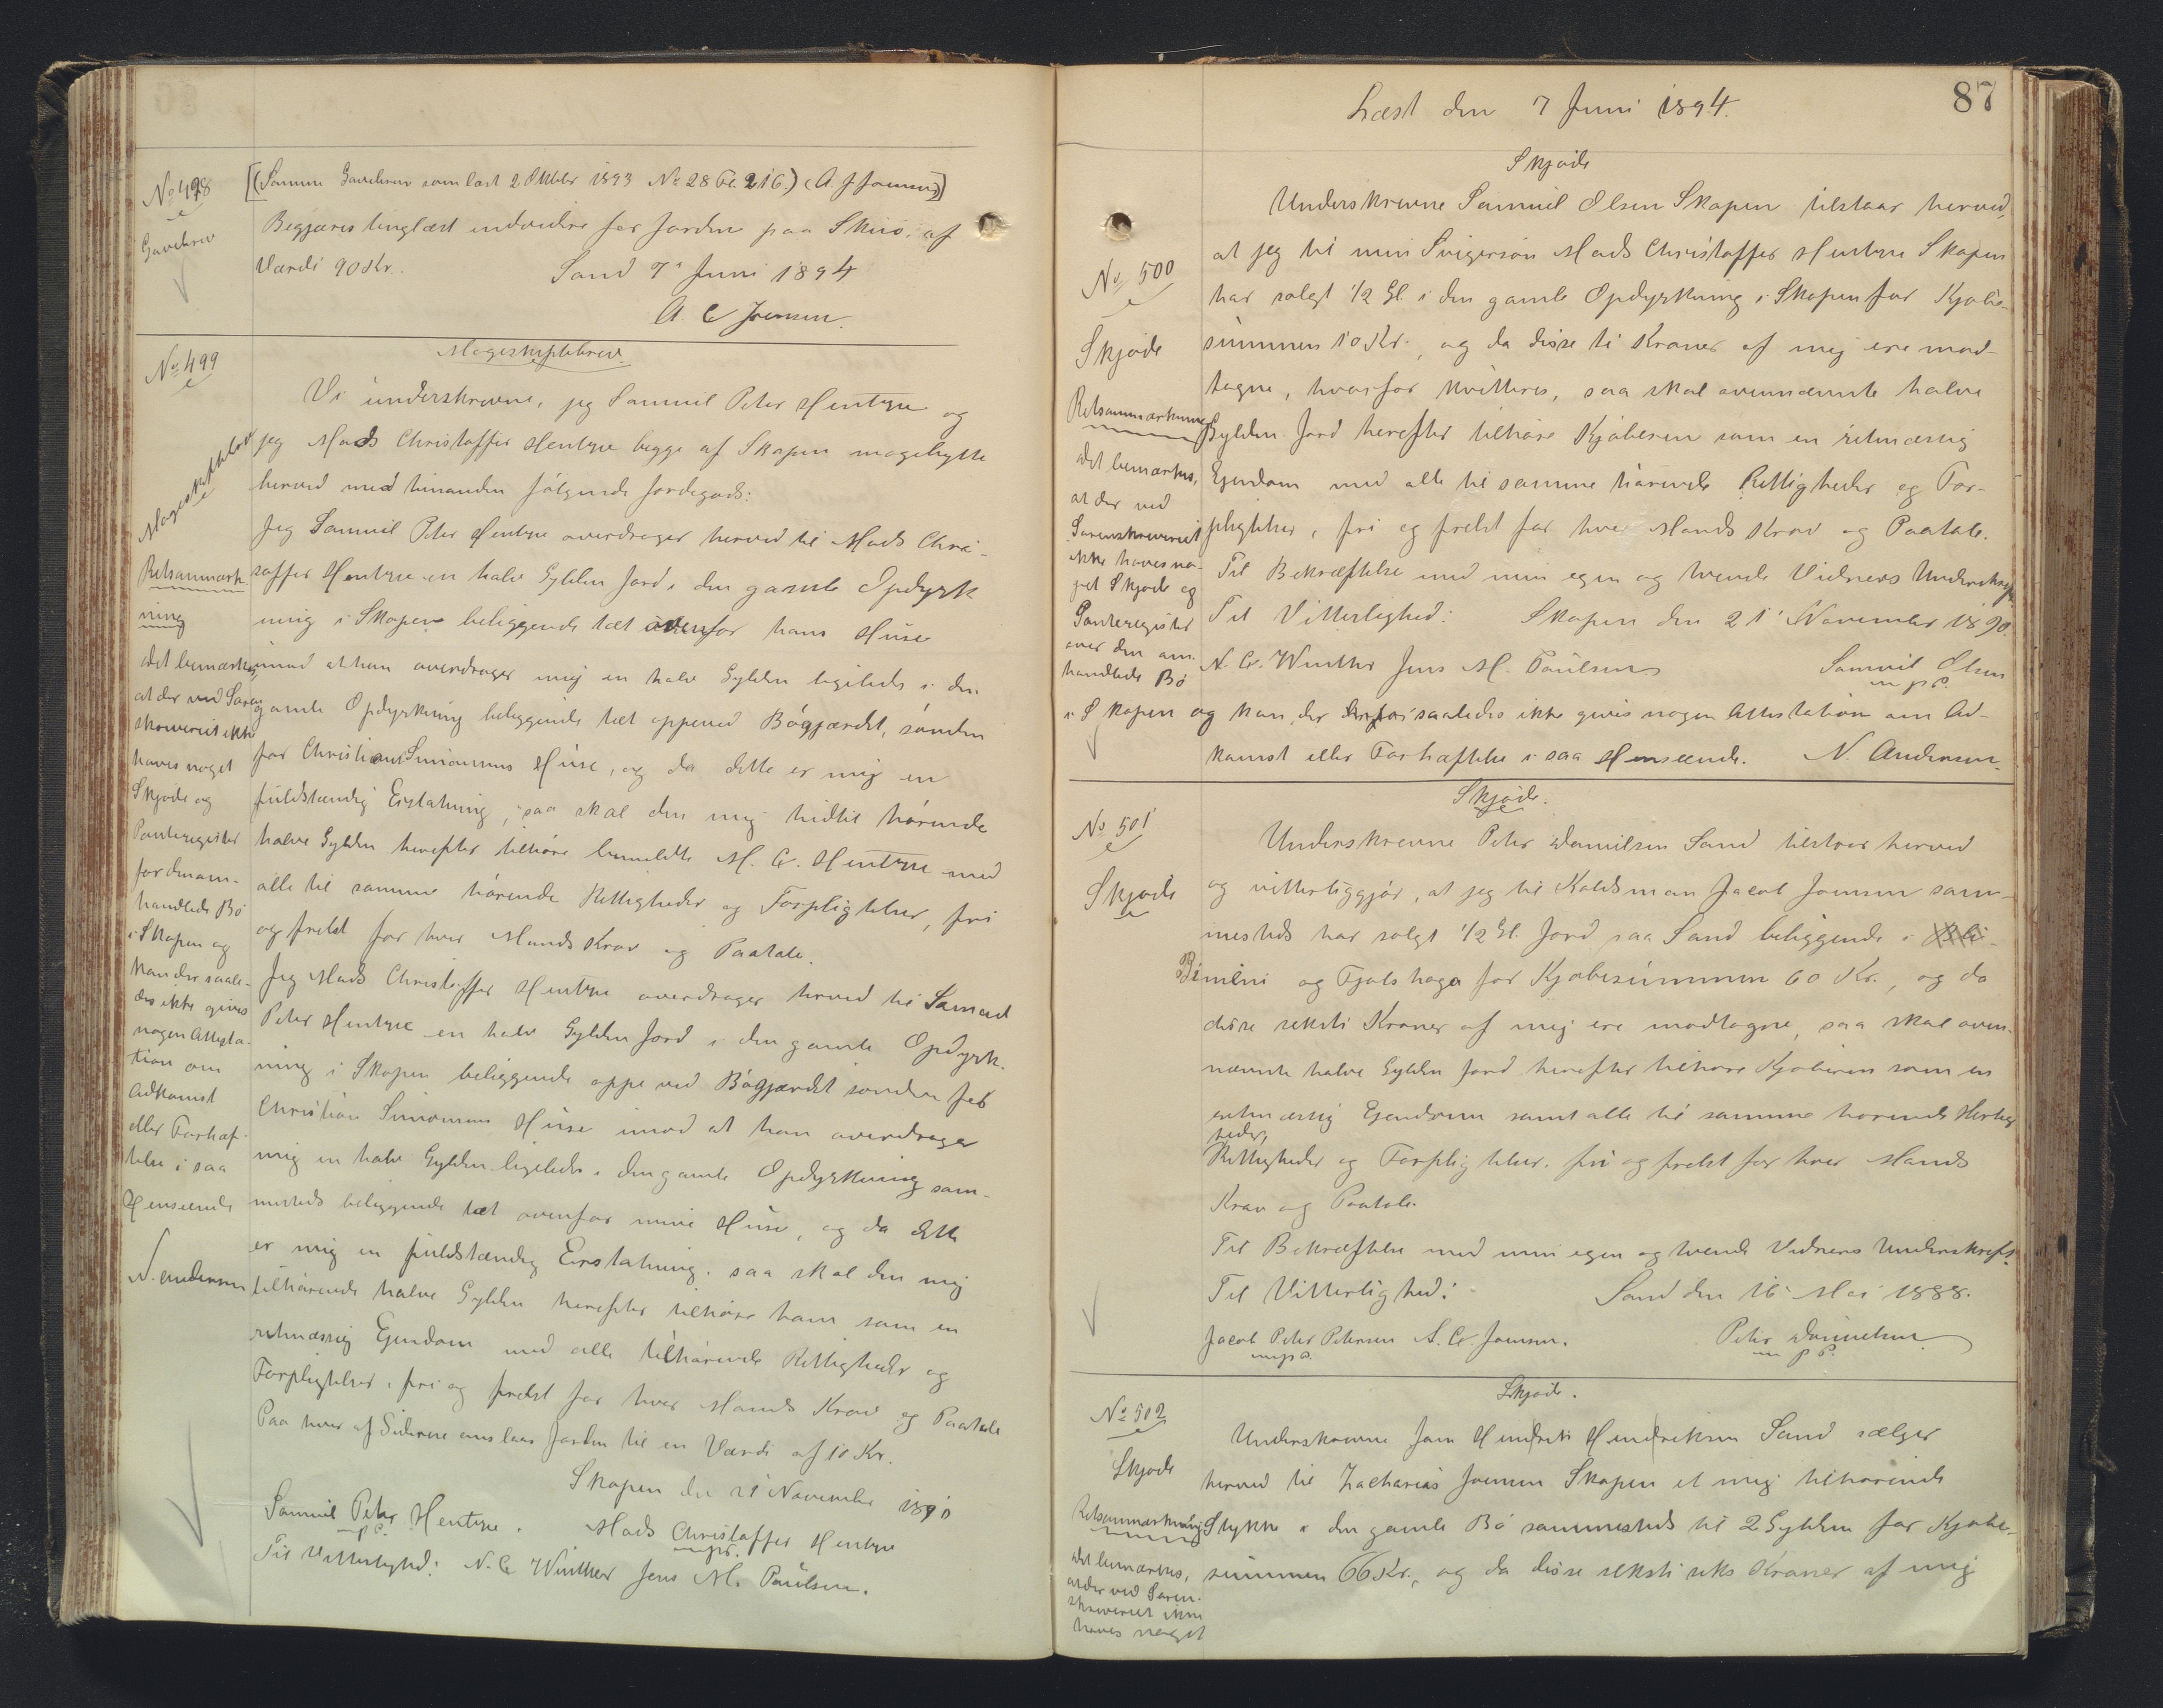 No 498
Gavebrev
[(Samme Gavebrev som læst 2 Oktbr 1893 No 28 Fol. 216.) (A. J Joensen)]
Begjæres tinglæst endvidere for Jorden paa Skuø, af
Værdi 90 Kr. Sand 7' Juni 1894
A. C Joensen.
No 499
Mageskiftebrev
Retsanmærk-
ning
det bemærkes,
at der ved Soren-
skriveriet ikke
haves noget
Skjøde og
Panteregister
for den om-
handlede Bø
i Skopen og
kan der saale-
des ikke gives
nogen Attesta-
tion om
Adkomst
eller Forhæf-
telse i saa
Henseende
N. Andersen
Mageskiftebrev
Vi underskrevne, jeg Samuel Peter Hentze og
jeg Mads Christoffer Hentze begge af Skopen magebytte
herved med hinanden følgende Jordegods:
Jeg Samuel Peter Hentze overdrager herved til Mads Chri-
stoffer Hentze en halv Gylden Jord i den gamle Opdyrk
ning i Skopen beliggende tæt ovenfor hans Huse
imod at han overdrager mig en halv Gylden ligeledes i den
gamle Opdyrkning beliggende tæt oppe ved Bøgjærdet, sønden
for Christian Simonsens Huse, og da dette er mig en
fuldstændig Erstatning, saa skal den mig hidtil hørende
halve Gylden herefter tilhøre bemeldte M. C. Hentze med
alle til samme hørende Rettigheder og Forpligtelser, fri
og frelst for hver Mands Krav og Paatale.
Jeg Mads Christoffer Hentze overdrager herved til Samuel
Peter Hentze en halv Gylden Jord i den gamle Opdyrk-
ning i Skopen beliggende oppe ved Bøgjærdet sønden for
Christian Simonsens Huse imod at han overdrager
mig en halv Gylden ligeledes i den gamle Opdyrkning sam-
mesteds beliggende tæt ovenfor mine Huse, og da dette
er mig en fuldstændig Erstatning, saa skal den mig
tilhørende halve Gylden herefter tilhøre ham som en
retmæssig Ejendom med alle tilhørende Rettigheder og
Forpligtelser, fri og frelst for hver Mands Krav og Paatale
Paa hver af Siderne anslaas Jorden til en Værdi af 10 Kr.
Skopen den 21 November 1890
Samuel Peter Hentze. Mads Christoffer Hentze
m. p. P. m. p. P.
Til Vitterlighed: N. C Winther Jens M. Poulsen.
87
Læst den 7 Juni 1894.
No 500
Skjøde
Retsanmærkning
det bemærkes,
at der ved
Sorenskriveriet
ikke haves no-
get Skjøde og
Panteregister
over den om-
handlede Bø
Skjøde
Underskrevne Samuel Olsen Skopen tilstaar herved,
at jeg til min Svigersøn Mads Christoffer Hentze Skopen
har solgt 1/2 Gl. i den gamle Opdyrkning i Skopen for Kjøbe-
summen 10 Kr., og da disse ti Kroner af mig ere mod-
tagne, hvorfor kvitteres, saa skal ovennævnte halve
Gylden Jord herefter tilhøre Kjøberen som en retmæssig
Ejendom med alle til samme hørende Rettigheder og For-
pligtelser, fri og frelst for hver Mands Krav og Paatale.
Til Bekræftelse med min egen og tvende Vidners Underskrift.
Til Vitterlighed: Skopen den 21' November 1890.
N. C. Winther Jens M. Poulsen Samuel Olsen
m. p. P.
i Skopen og kan der saaledes ikke gives nogen Attestation om Ad-
komst eller Forhæftelse i saa Henseende. N. Andersen.
No 501
Skjøde
Skjøde.
Underskrevne Peter Danielsen Sand tilstaar herved
og vitterliggjør, at jeg til Kaldsman Jacob Joensen sam-
mesteds har solgt 1/2 Gl. Jord paa Sand beliggende i
og Fjalshaga for Kjøbesummen 60 Kr., og da
disse seksti Kroner af mig ere modtagne, saa skal oven-
nævnte halve Gylden Jord herefter tilhøre Kjøberen som en
retmæssig Ejendom samt alle til samme hørende Herlig
heder,
Rettigheder og Forpligtelser, fri og frelst for hver Mands
Krav og Paatale.
Til Bekræftelse med min egen og tvende Vidners Underskrift.
Til Vitterlighed: Sand den 16 Mai 1888.
Jacob Peter Petersen A. C. Joensen. Peter Danielsen
m. p. P. m. p. P.
No 502
Skjøde
Retsanmærkning
det bemærkes,
at der ved Soren-
skriveriet ikke
haves noget
Skjøde.
Underskrevne Joen Hendrik Hendriksen Sand sælger
herved til Zacharias Joensen Skopen et mig tilhørende
Stykke i den gamle Bø sammesteds til 2 Gylden for Kjøbe-
summen 66 Kr., og da disse seksti seks Kroner af mig